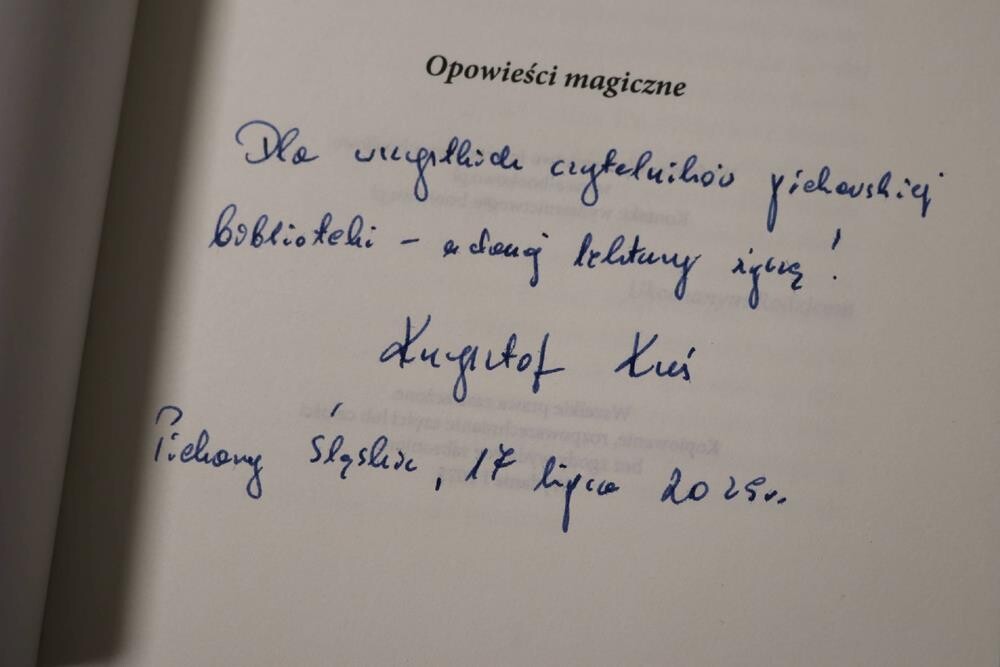 Opowieści magiczne
Dla wszystkich czytelników piekarskiej
biblioteki – udanej lektury życzę!
Krzysztof Kuś
Piekary Śląskie, 17 lipca 2025r.